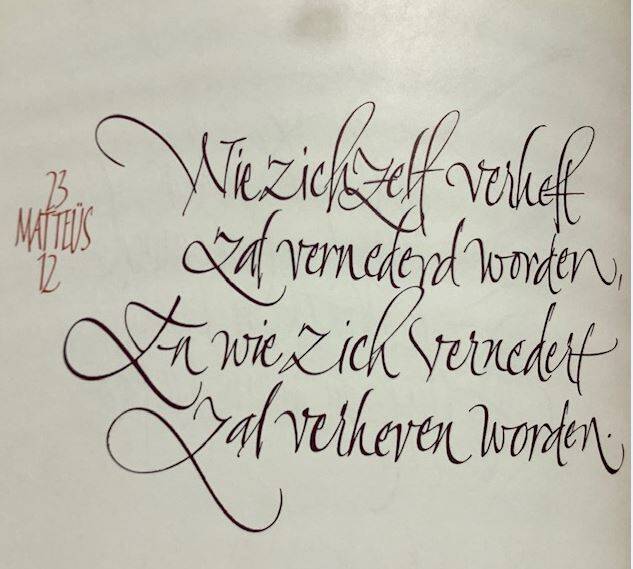 23
MATTEÜS
12
Wie zichzelf verheft
zal vernederd worden,
En wie zich vernedert
zal verheven worden.